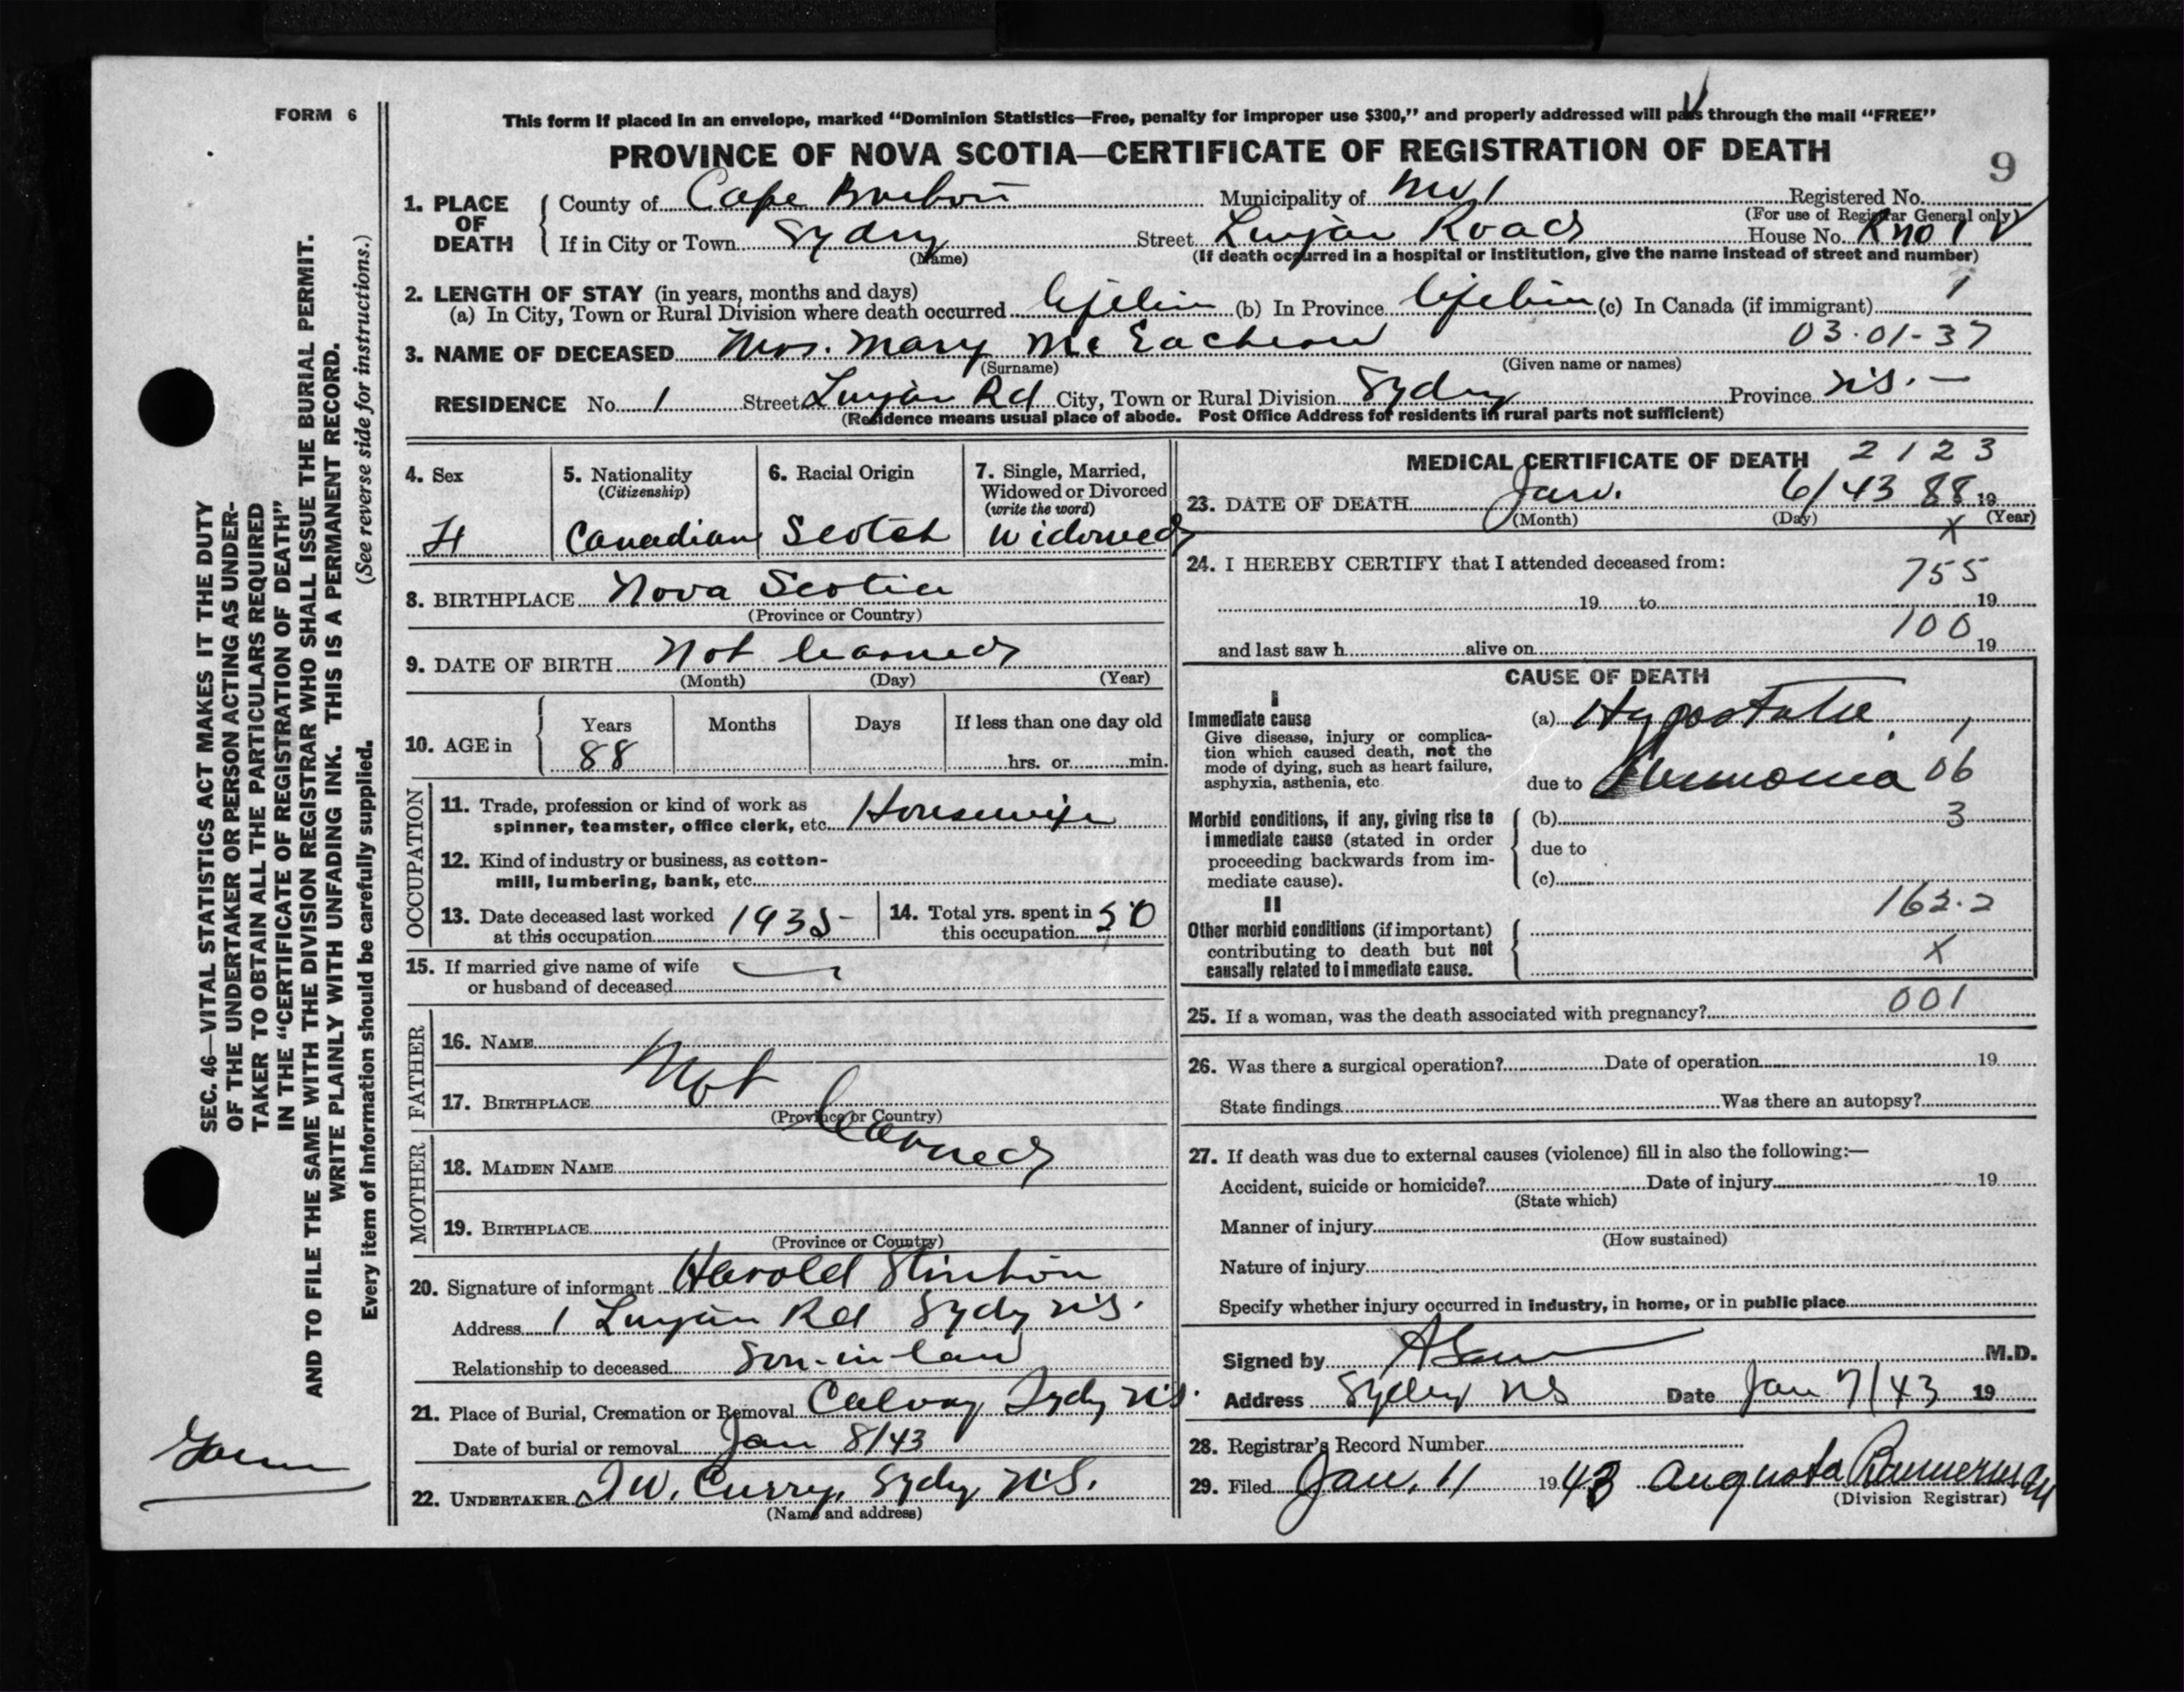 FORM 6
This form if placed in an envelope, marked “Dominion Statistics—Free, penalty for improper use $300,” and properly addressed will pass through the mail “FREE”
PROVINCE OF NOVA SCOTIA—CERTIFICATE OF REGISTRATION OF DEATH
9
1. PLACE OF DEATH
County of Cape Breton Municipality of No 1 Registered No.
(For use of Registrar General only)
If in City or Town Sydney Street Road House No.
(Name) (If death occurred in a hospital or institution, give the name instead of street and number)
2. LENGTH OF STAY (in years, months and days)
(a) In City, Town or Rural Division where death occurred lifetime (b) In Province lifetime (c) In Canada (if immigrant) 1
03-01-37
3. NAME OF DECEASED Mrs. Mary McEachern
(Surname) (Given name or names)
RESIDENCE No. 1 Street Rd City, Town or Rural Division Sydney Province N.S. —
(Residence means usual place of abode. Post Office Address for residents in rural parts not sufficient)
4. Sex
5. Nationality
(Citizenship)
Canadian
6. Racial Origin
Scotch
7. Single, Married, Widowed or Divorced
(write the word)
Widowed
8. BIRTHPLACE Nova Scotia
(Province or Country)
9. DATE OF BIRTH Not learned
(Month) (Day) (Year)
10. AGE in
Years Months Days If less than one day old
88 hrs. or min.
OCCUPATION
11. Trade, profession or kind of work as
spinner, teamster, office clerk, etc. Housewife
12. Kind of industry or business, as cotton-
mill, lumbering, bank, etc.
13. Date deceased last worked
at this occupation 1935-
14. Total yrs. spent in
this occupation 50
15. If married give name of wife
or husband of deceased —
FATHER
16. NAME
Not
17. BIRTHPLACE
(Province or Country)
learned
MOTHER
18. MAIDEN NAME
19. BIRTHPLACE
(Province or Country)
20. Signature of informant Harold
Address 1 Rd Sydney N.S.
Relationship to deceased Son-in-law
21. Place of Burial, Cremation or Removal Calvary Sydney N.S.
Date of burial or removal Jan 8/43
22. UNDERTAKER W. Curry, Sydney N.S.
(Name and address)
MEDICAL CERTIFICATE OF DEATH 2123
23. DATE OF DEATH Jan. 6/43 88 19
(Month) (Day) (Year)
X
24. I HEREBY CERTIFY that I attended deceased from:
755
19 to 19
100
and last saw h alive on 19
CAUSE OF DEATH
I
Immediate cause
Give disease, injury or complica-
tion which caused death, not the
mode of dying, such as heart failure,
asphyxia, asthenia, etc.
(a) Hypostatic 1
due to Pneumonia 06
Morbid conditions, if any, giving rise to
immediate cause (stated in order
proceeding backwards from im-
mediate cause).
(b) 3
due to
(c)
162.2
II
Other morbid conditions (if important)
contributing to death but not
causally related to immediate cause.
X
001
25. If a woman, was the death associated with pregnancy?
26. Was there a surgical operation? Date of operation 19
State findings Was there an autopsy?
27. If death was due to external causes (violence) fill in also the following:—
Accident, suicide or homicide? Date of injury 19
(State which)
Manner of injury
(How sustained)
Nature of injury
Specify whether injury occurred in industry, in home, or in public place
Signed by M.D.
Address Sydney NS Date Jan 7/43 19
28. Registrar's Record Number
29. Filed Jan. 11 1943 Augusta
(Division Registrar)
SEC. 46—VITAL STATISTICS ACT MAKES IT THE DUTY
OF THE UNDERTAKER OR PERSON ACTING AS UNDER-
TAKER TO OBTAIN ALL THE PARTICULARS REQUIRED
IN THE “CERTIFICATE OF REGISTRATION OF DEATH”
AND TO FILE THE SAME WITH THE DIVISION REGISTRAR WHO SHALL ISSUE THE BURIAL PERMIT.
WRITE PLAINLY WITH UNFADING INK. THIS IS A PERMANENT RECORD.
Every item of information should be carefully supplied. (See reverse side for instructions.)